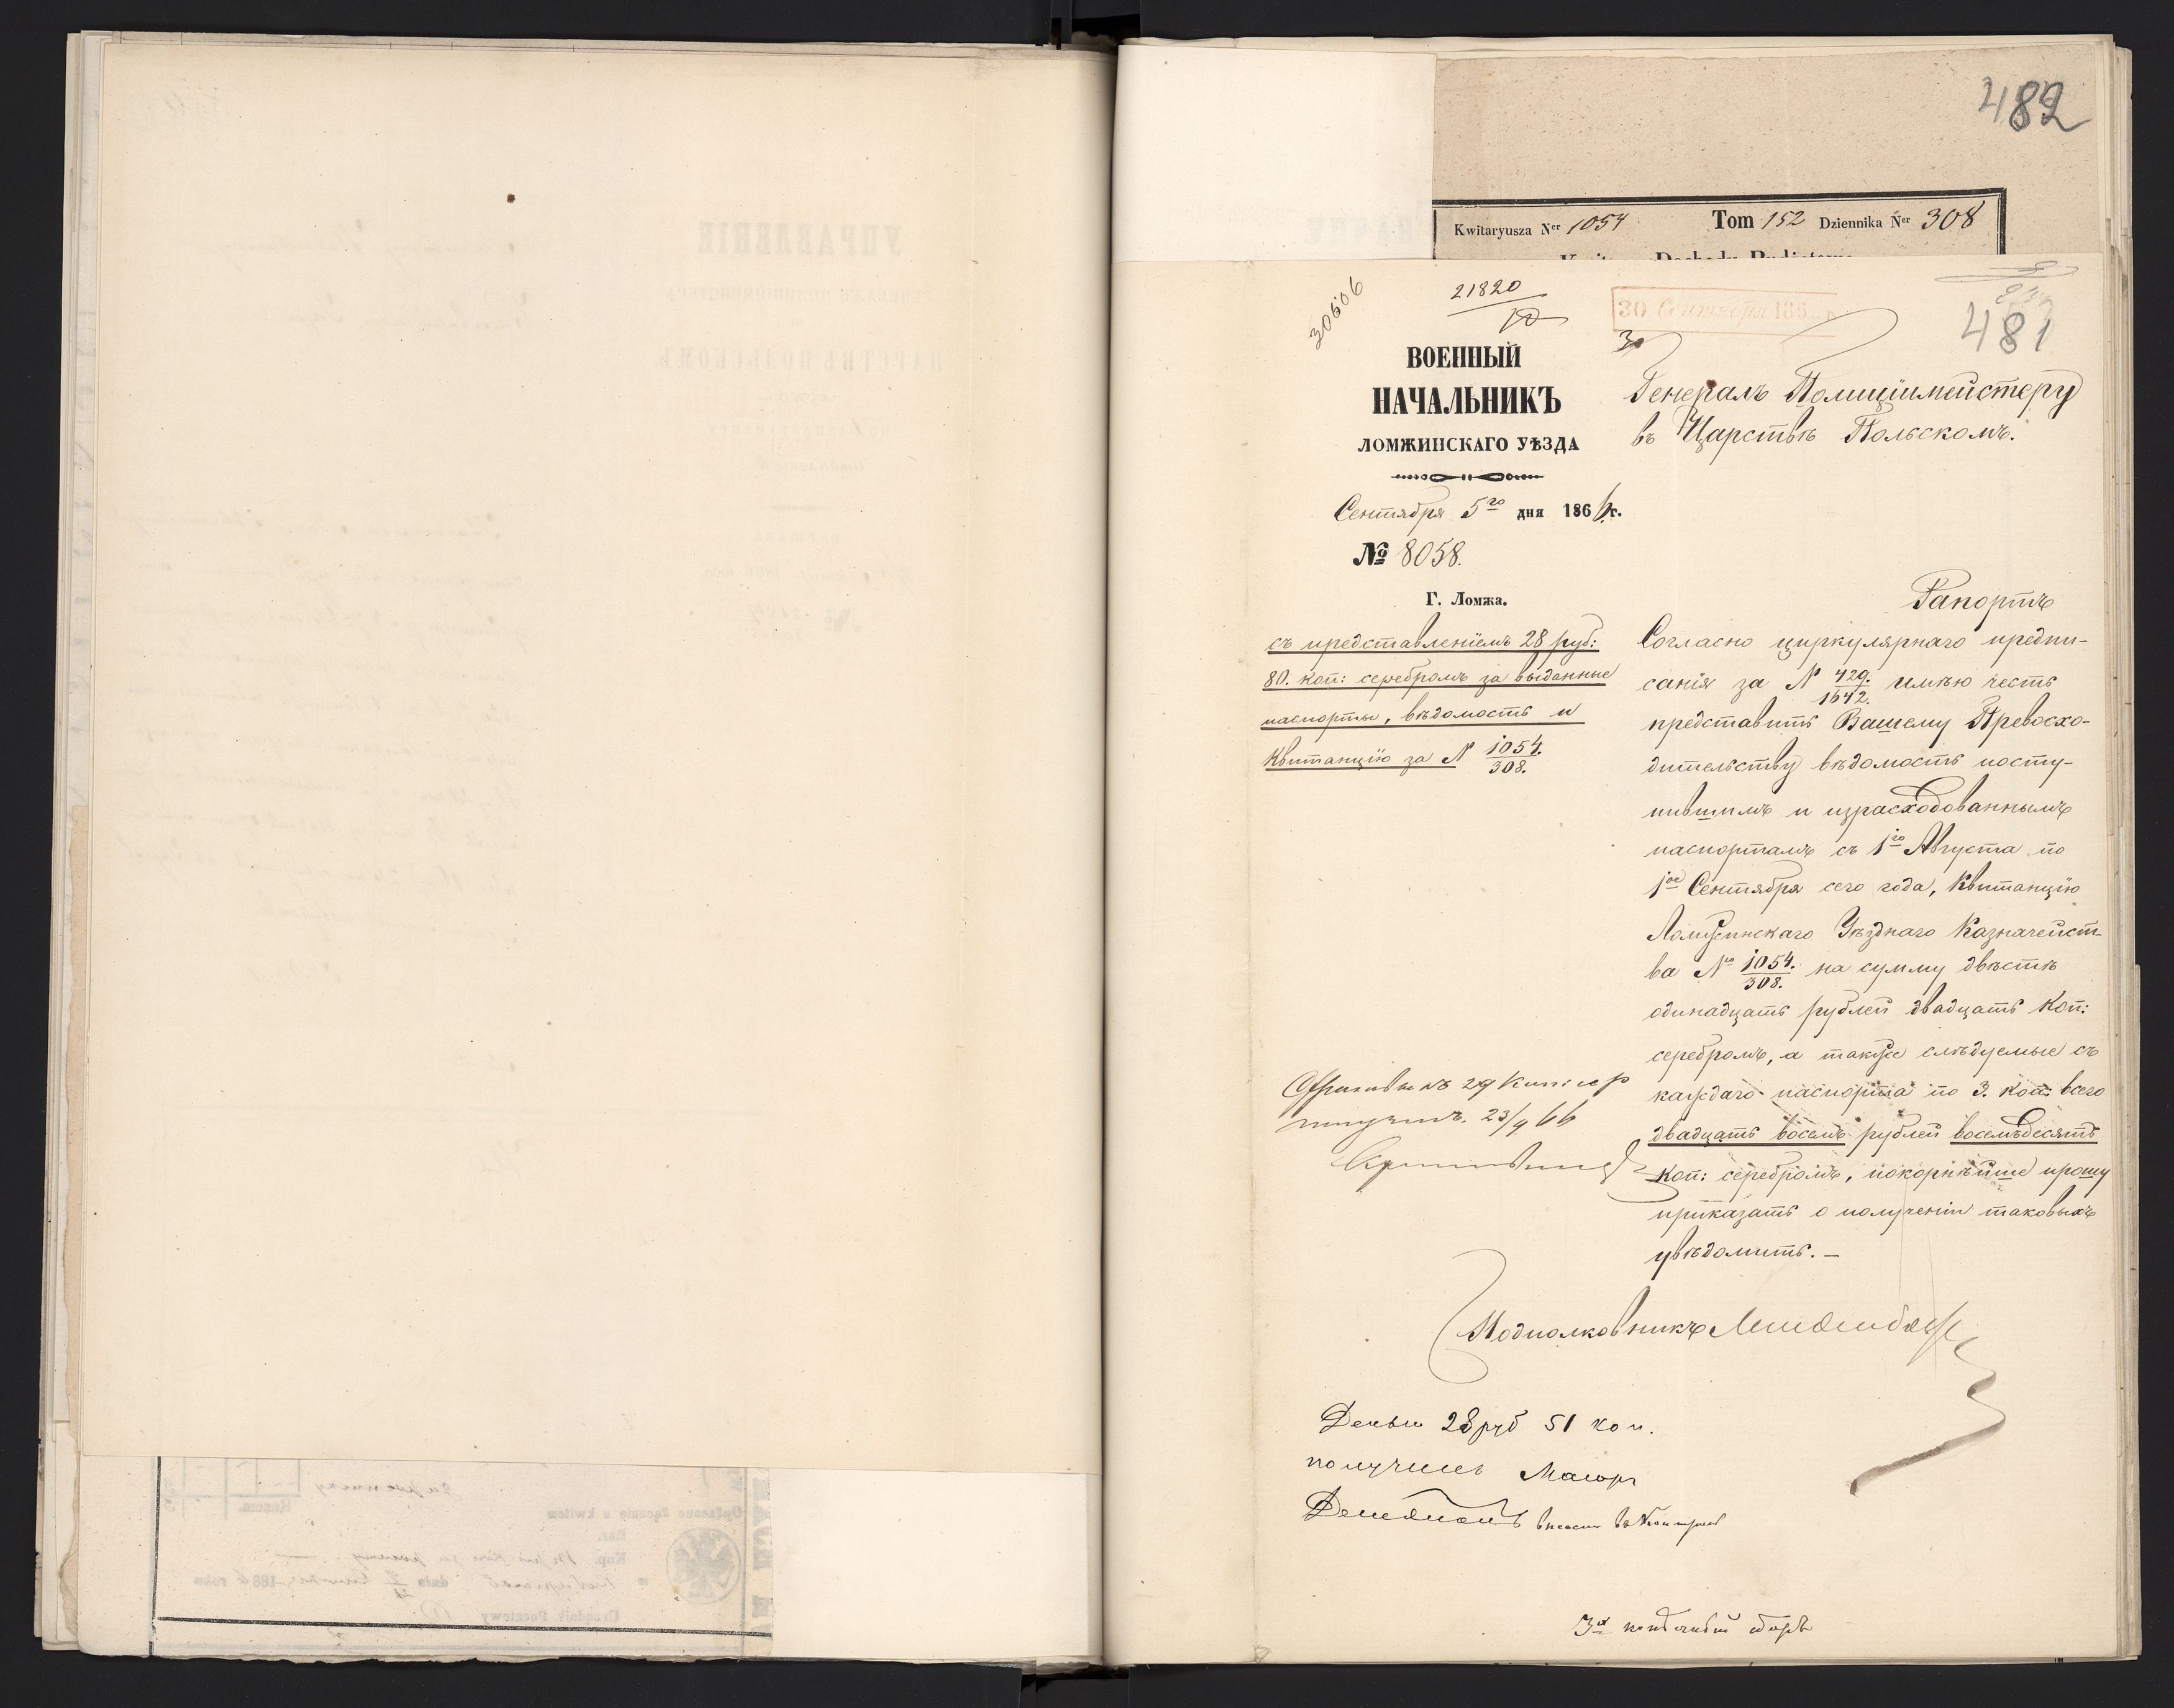 482
Kwitaryusza Ner 1054 Tom 152 Dziennika Ner 308
30606
21820
30 Сентября 186
481
ВОЕННЫЙ
НАЧАЛЬНИКЪ
ЛОМЖИНСКАГО УѢЗДА
Сентября 5го дня 1866 г.
№ 8058.
Г. Ломжа.
съ представленіемъ 28 руб:
80. коп: серебромъ за выданные
паспорты, вѣдомость и
квитанцію за N 1054./308.
Генералъ Полиціимейстеру
въ Царствѣ Польскомъ.
Рапортъ
Согласно циркулярнаго предпи-
санія за N 429./1642. имѣю честь
представить Вашему Превосхо-
дительству вѣдомость посту-
пившимъ и израсходованнымъ
паспортамъ съ 1го Августа по
1ое Сентября сего года, квитанцію
Ломжинскаго Уѣзднаго Казначейст-
ва № 1054./308. на сумму двѣстѣ
одинадцать рублей двадцать коп:
серебромъ, а также слѣдуемые съ
каждаго паспорта по 3. коп: всего
двадцать восемь рублей восемьдесятъ
коп: серебромъ, покорнѣйше прошу
приказать о полученіи таковыхъ
увѣдомить. —
29 коп:
23/9 66
Подполковникъ
Деньги 28 руб 51 коп.
получилъ Маіоръ
3х копѣечный сборъ
Opłacono łącznie z kwitem
Rsr.
Kop.
dnia 186 roku
Urzędnik Pocztowy
Razem.
УПРАВЛЕНІЕ